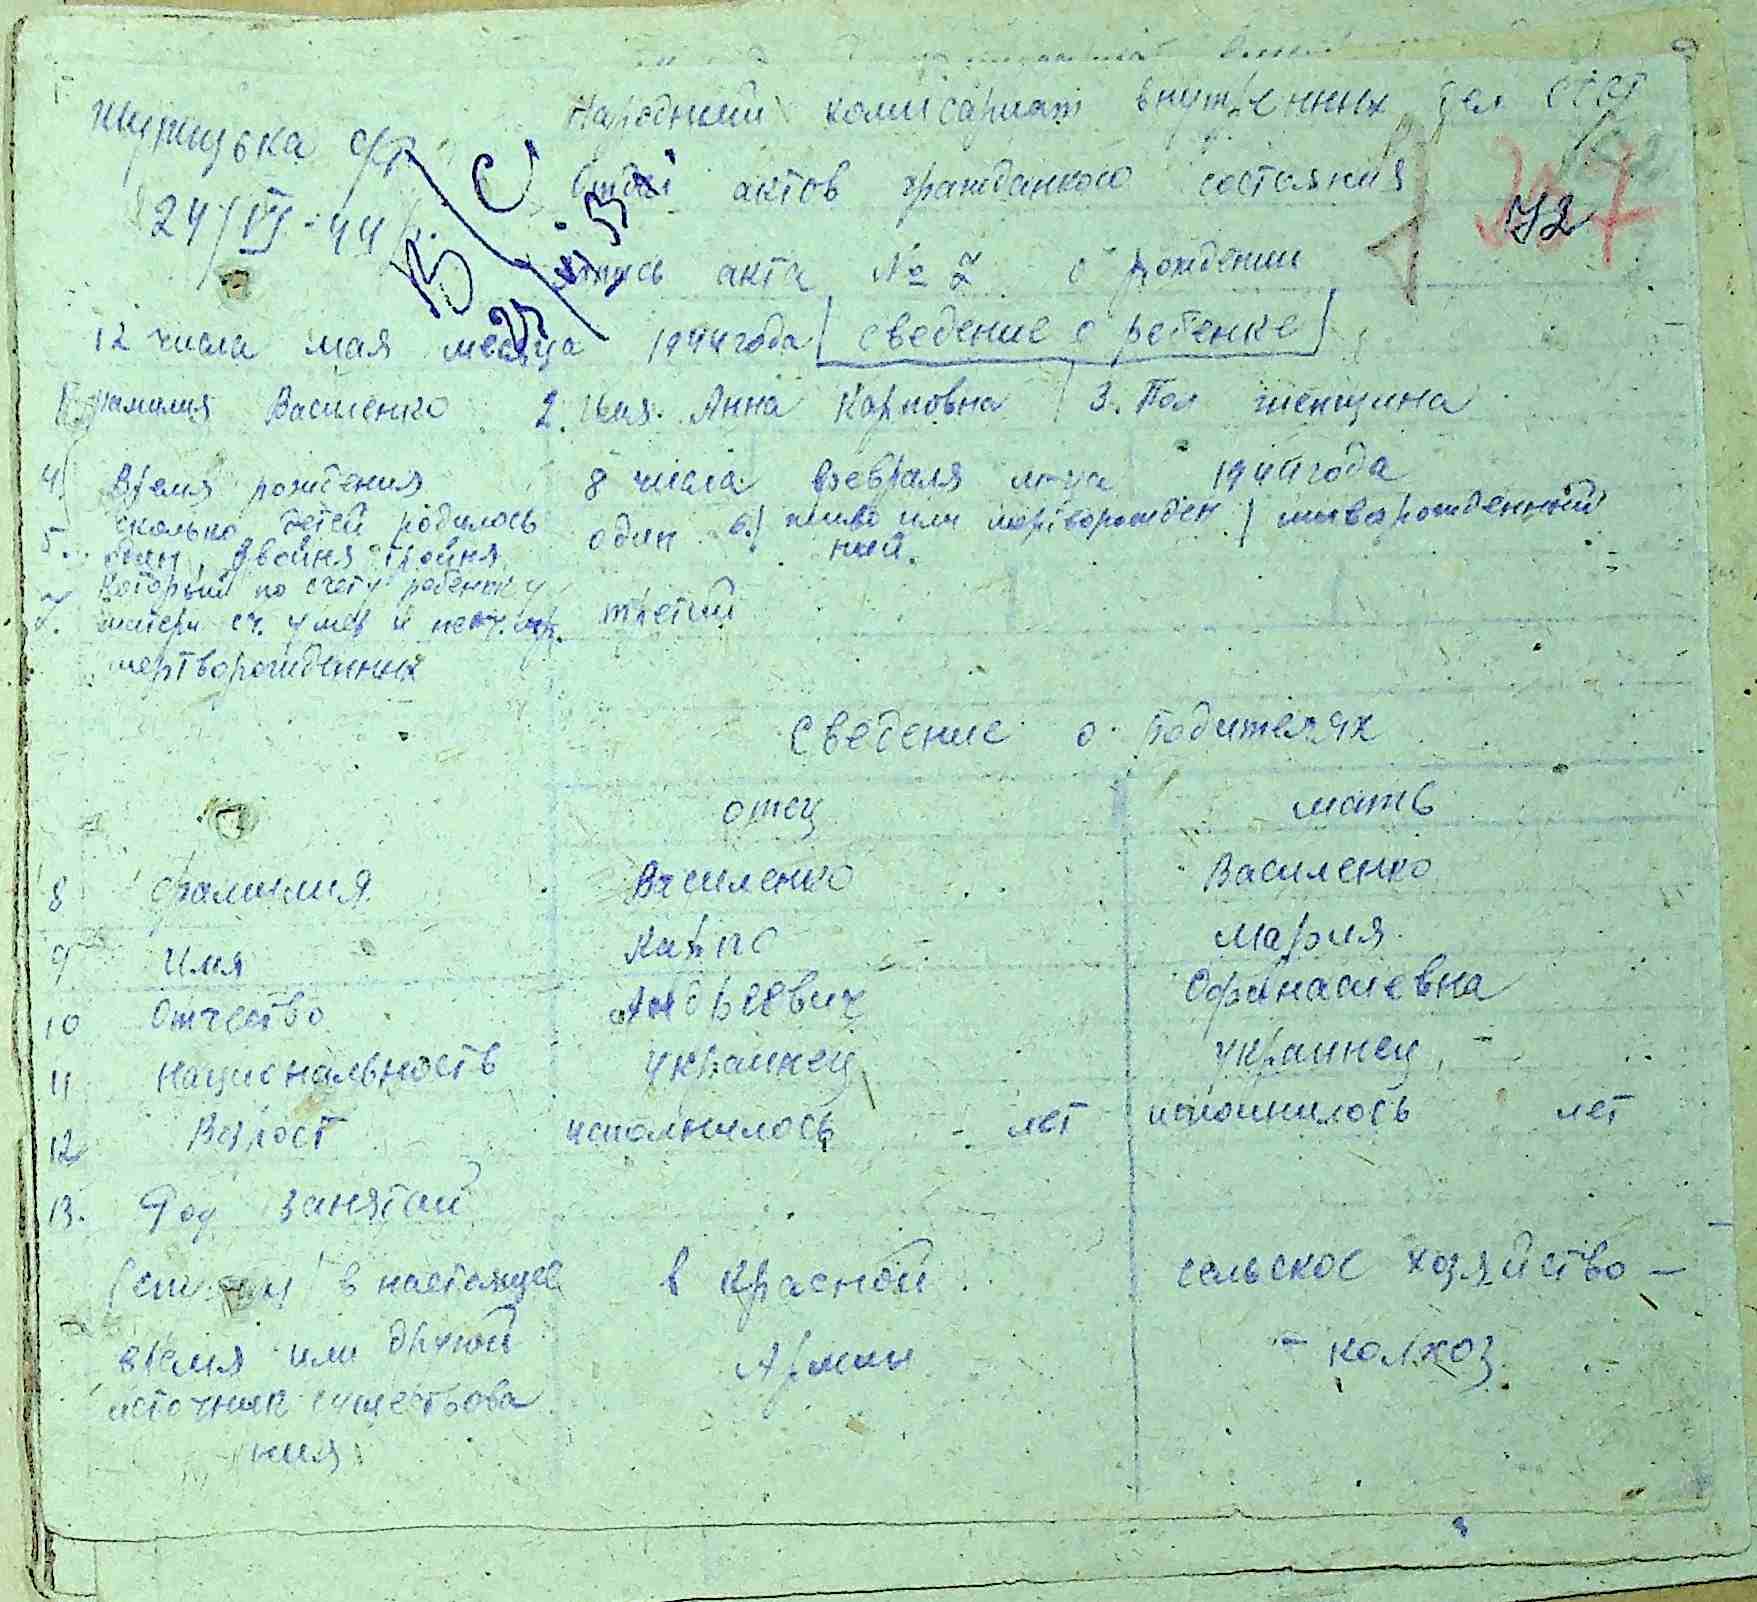 Народний комісариат внутренних дел СССР
24/VI-44 р.
Отдел актов гражданкого состояния
72
запись акта № 2 о рождении
12 числа мая месяца 1944 года сведение о ребенке
1. фамилия Василенко 2. Имя. Анна Карповна 3. Пол женщина
4. Время рождения 8 числа февраля м-ца 1944 года
5. сколько детей родилось один 6. живо или мертворожден живорожденний
один, двойня тройня ний.
7. Который по счету ребенок у
матери сч. умер и третий
мертворожденних
Сведение о родителях
отец мать
8 фамилия Василенко Василенко
9 Имя Карпо Мария
10 Отчество Андреевич Офанасиевна
11 Национальность украинец украинец
12 Возрост исполнилось - лет исполнилось лет
13. Род занятий
в настоящее в Красной сельское хозяйство -
время или другой Армии - колхоз
источник существова
ния